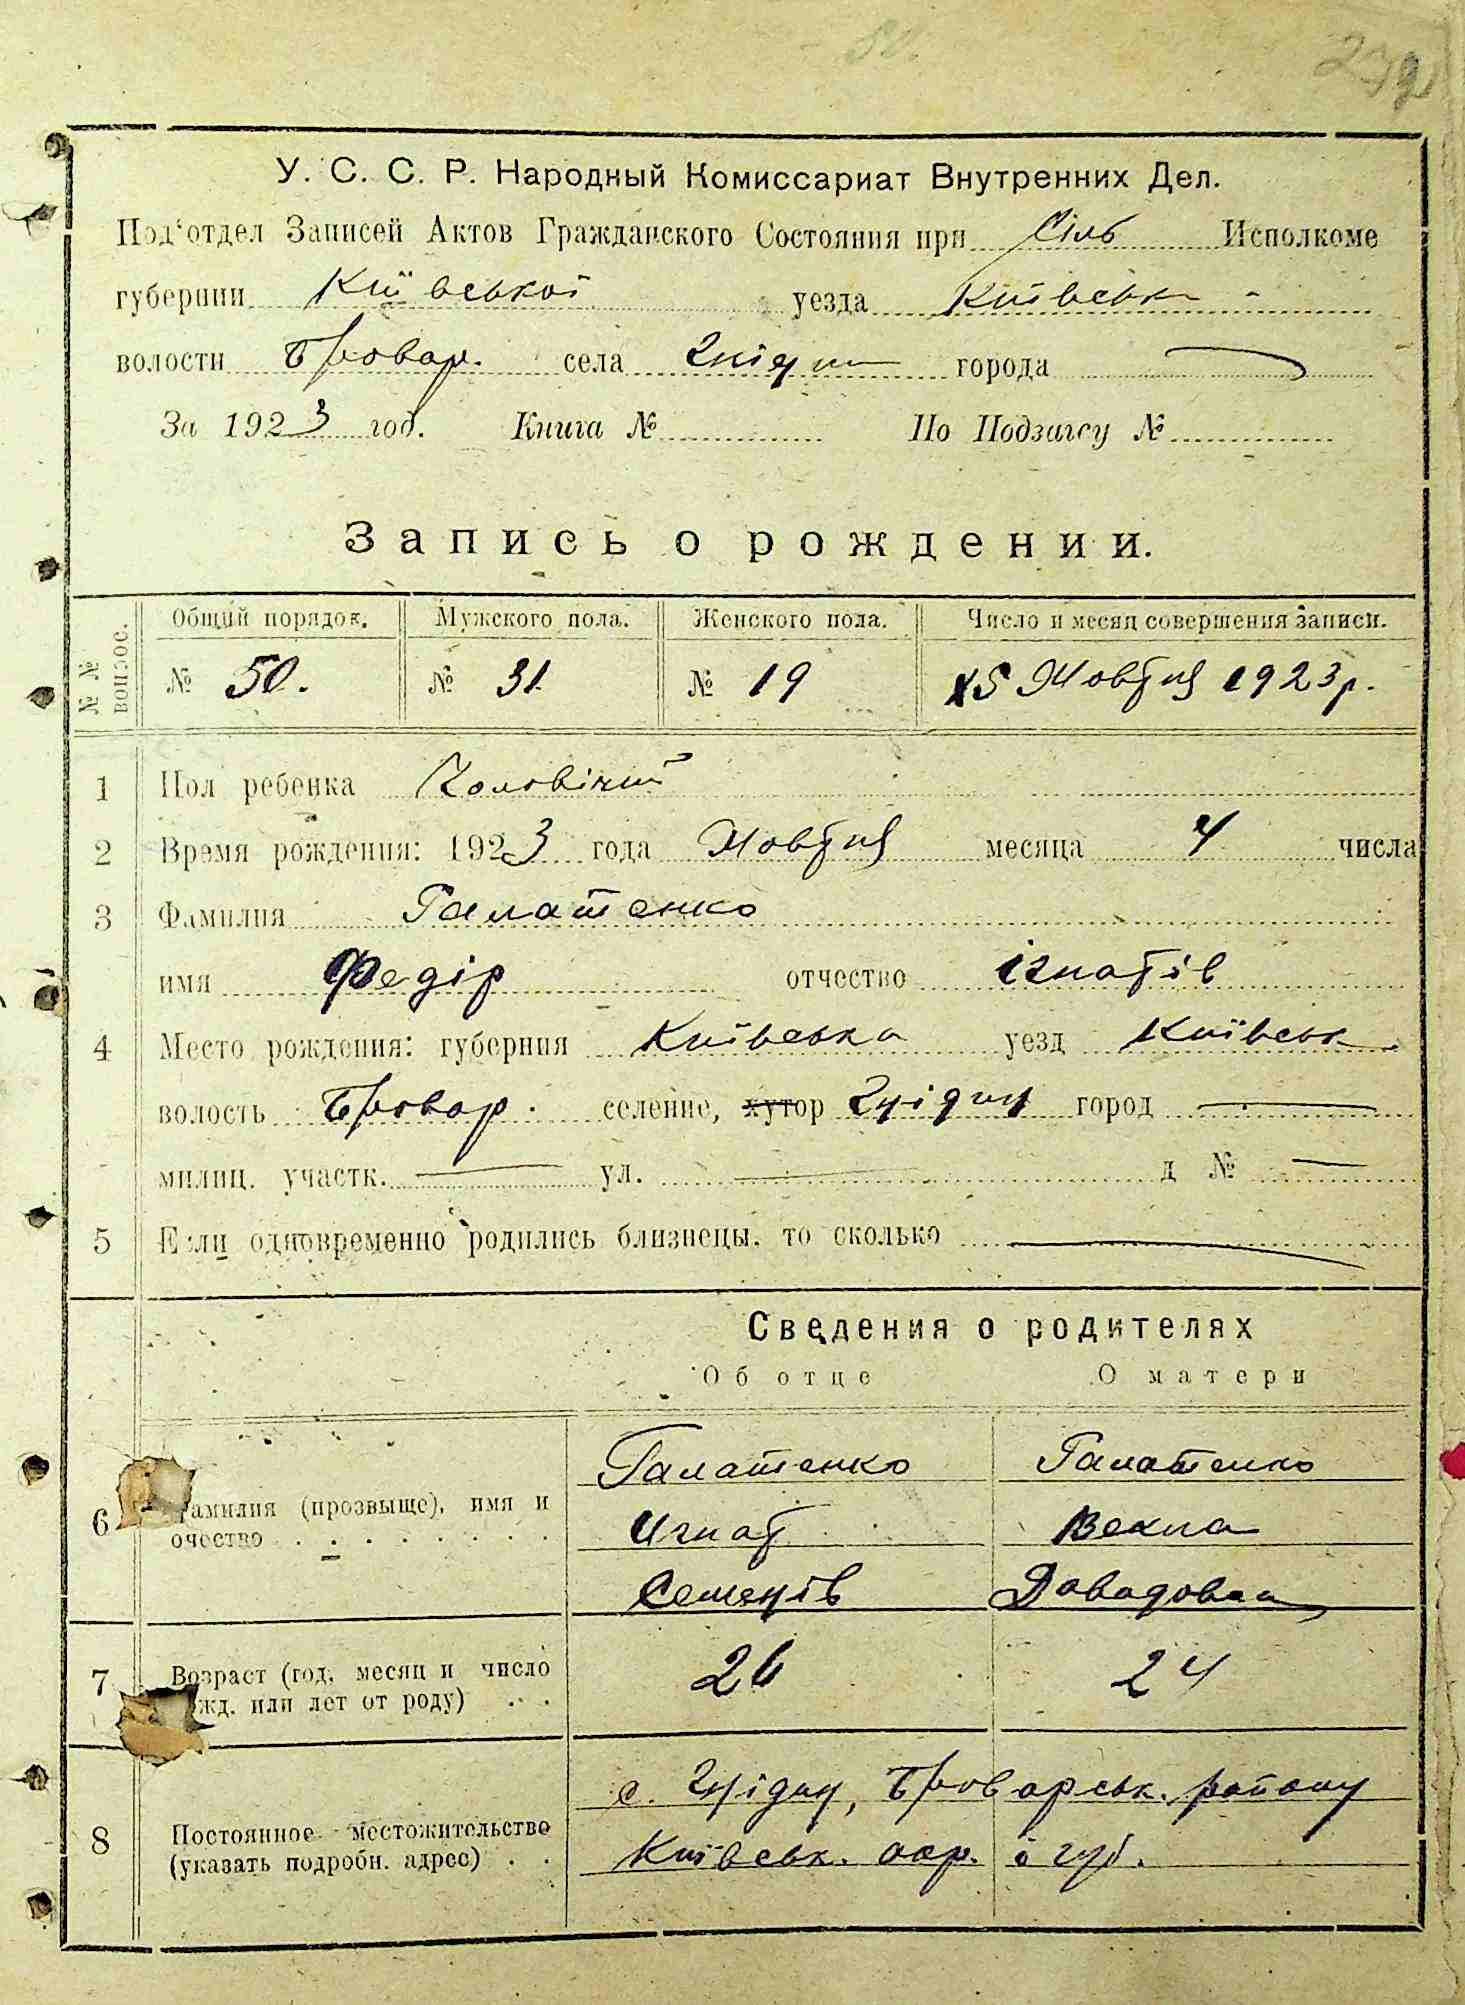 50.
У. С. С. Р. Народный Комиссариат Внутренних Дел.
Под'отдел Записей Актов Гражданского Состояния при Сіль Исполкоме
губернии Київської уезда Київськ
волости Бровар. села Гнідин города
За 1923 год. Книга № По Подзагсу №
Запись о рождении.
№№ вопрос. Общий порядок. Мужского пола. Женского пола. Число и месяц совершения записи.
№ 50. № 31. № 19 15 Жовтня 1923 р.
1 Пол ребенка Чоловічий
2 Время рождения: 1923 года Жовтня месяца 4 числа
3 Фамилия Галатенко
имя Федір отчество Ігнатів
4 Место рождения: губерния Київська уезд Київськ.
волость Бровар. селение, хутор Гнідин город
милиц. участк. ул. д №
5 Если одновременно родились близнецы, то сколько
Сведения о родителях
Об отце О матери
Галатенко Галатенко
6 Фамилия (прозвыще), имя и Игнат Векла
очество
Семенів Давадовна
7 Возраст (год, месяц и число 26 24
рожд. или лет от роду)
с. Гнідин, Броварськ. району
8 Постоянное местожительство Київськ. окр. і губ.
(указать подробн. адрес)